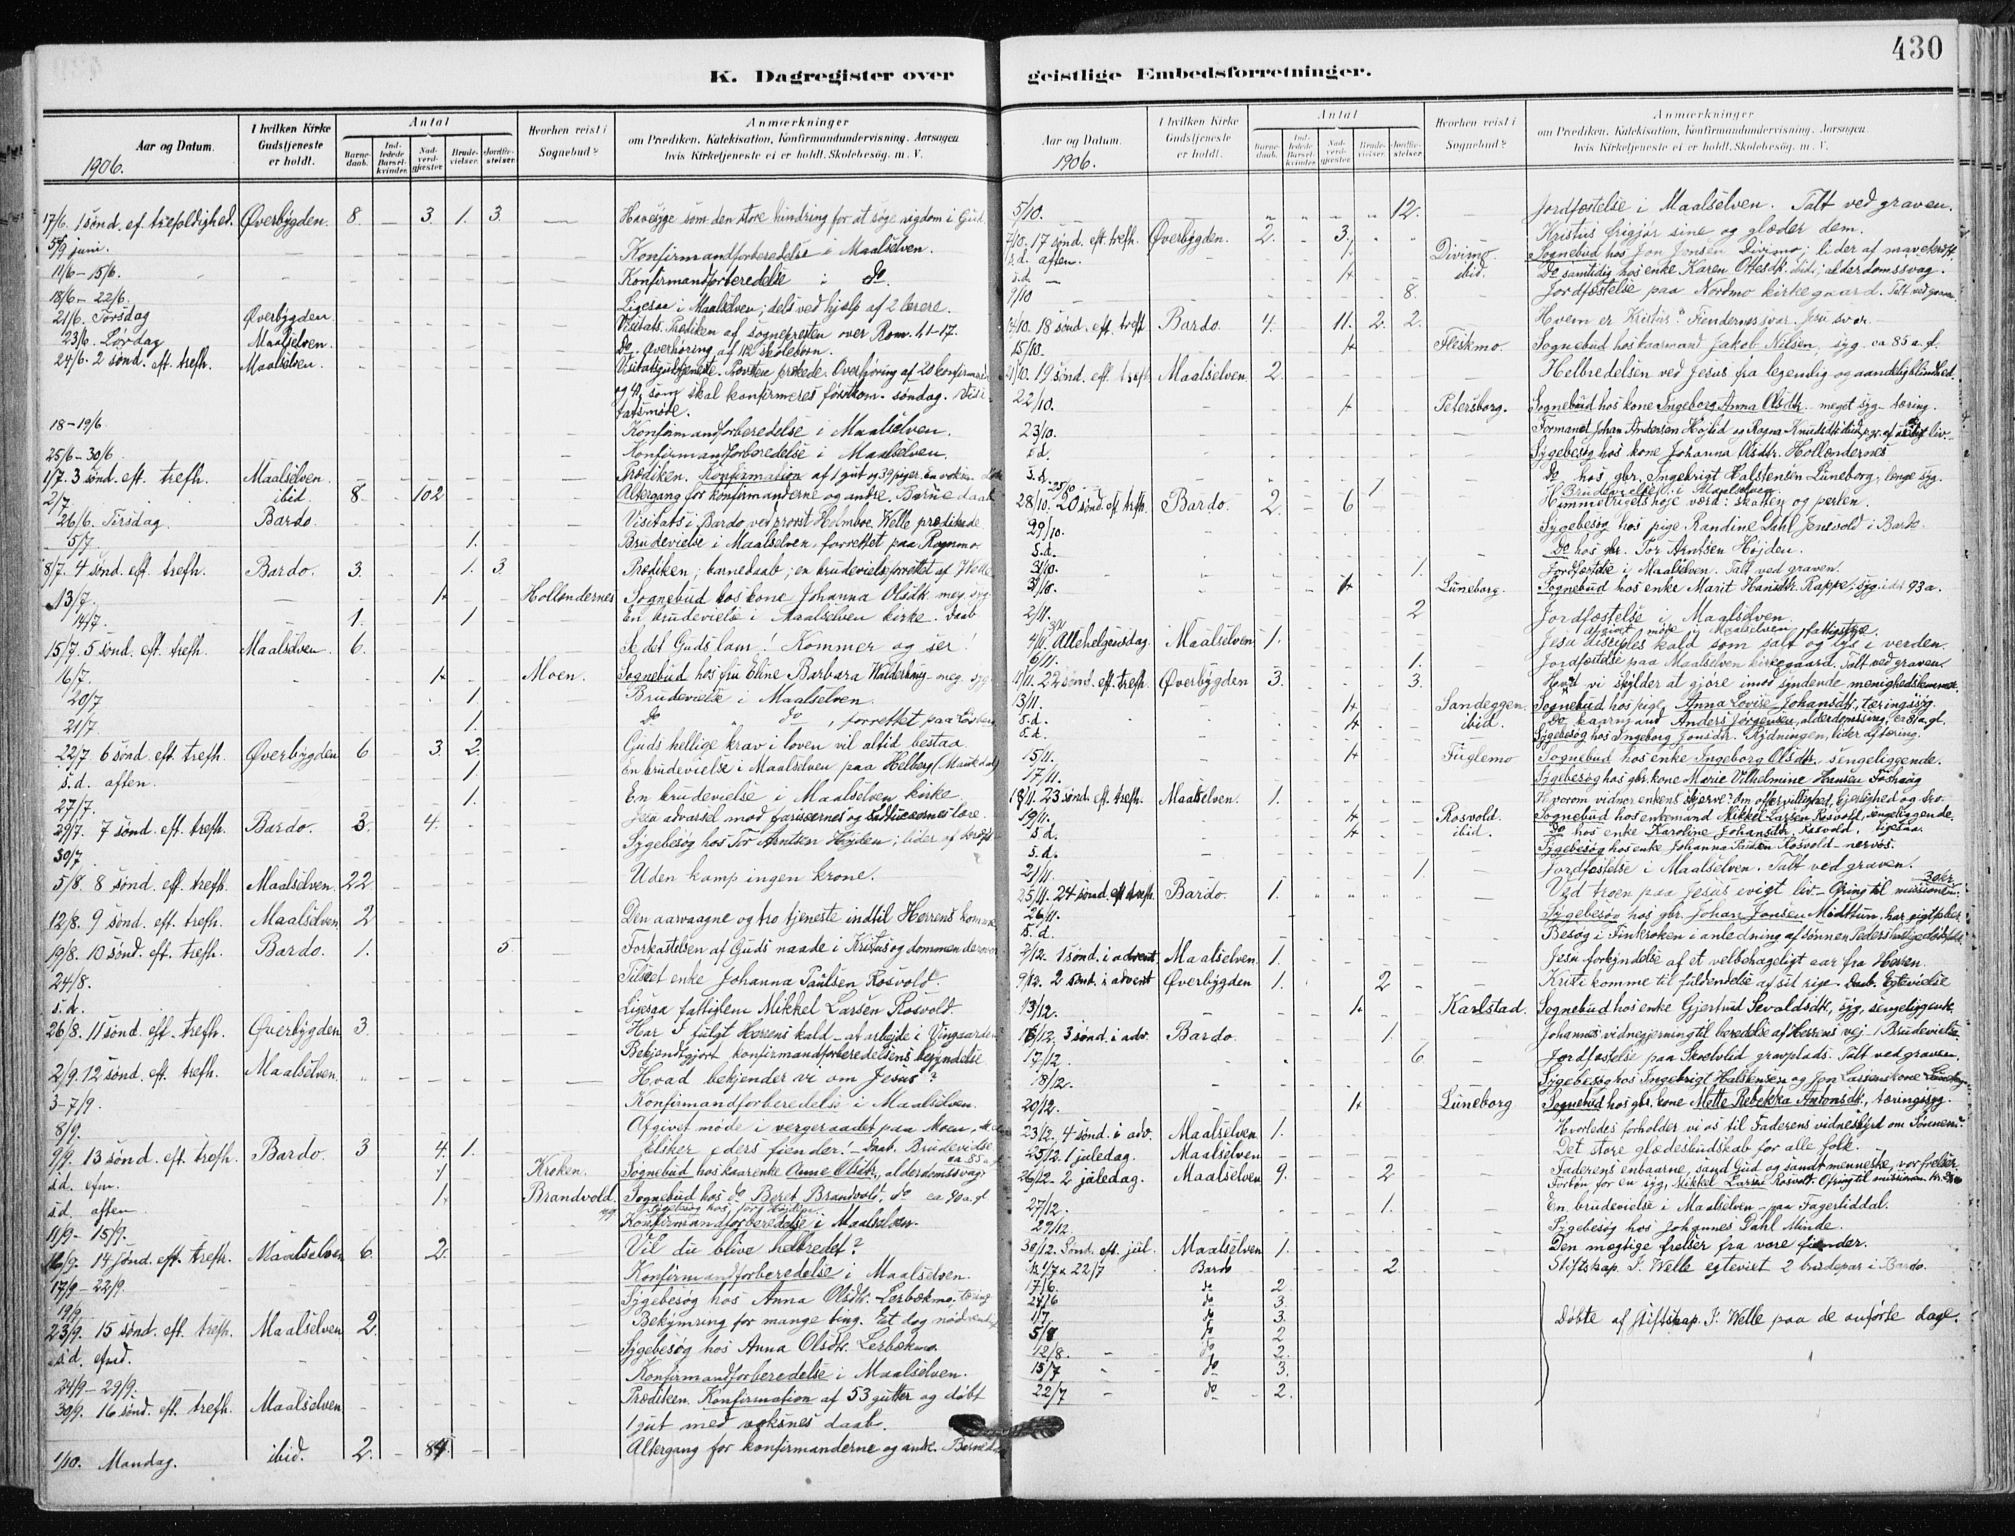 430
K. Dagregister over geistlige Embedsforretninger.
Aar og Datum.
1906.
I hvilken Kirke Gudstjeneste er holdt.
Antal
Barnedaab.
Indledede Barselkvinder.
Nadverdgjester.
Brudevielser.
Jordfæstelser.
Hvorhen reist i Sognebud?
Anmærkninger
om Prædiken. Katekisation, Konfirmandundervisning. Aarsagen
hvis Kirketjeneste ei er holdt. Skolebesøg. m. V.
17/6. 1 sønd. ef. trefoldighed. Øverbygden. 8 – 3. 1. 3. — Havesyge som den store hindring for at søge rigdom i Gud.
5/9 juni. Konfirmandforberedelse i Maalselven.
11/6 – 15/6. Konfirmandforberedelse i do.
18/6 – 22/6. Ligesaa i Maalselven; dels ved hjælp af 2 lærere.
21/6. Torsdag Øverbygden Visitats. Prædiken af sognepresten over Rom. 1.1-17.
23/6. Lørdag Maalselven. Do. Overhøring af skolebørn.
24/6. 2 sønd. eft. trefh. Maalselven. Visitatsgudstjeneste. Overhøring af 20 konfirmander
og 4, som skal konfirmeres førstkom. søndag. Visi-
tatsmøde.
18 – 19/6 Konfirmandforberedelse i Maalselven.
25/6 – 30/6 Konfirmandforberedelse i Maalselven.
1/7. 3 sønd. eft. trefh. Maalselven. Prædiken. Konfirmation af 1 gut og 39 piger.
2/7 ibid. 8. – 102 Altergang for konfirmanderne og andre. Barnedaab
26/6. Tirsdag Bardo. Visitats i Bardo ved provst Holmboe. Welle prædikede
5/7. 1. Brudevielse i Maalselven, forrettet paa Rognmo
8/7. 4 sønd. eft. trefh. Bardo. 3. 1. 3 Prædiken; barnedaab; en brudevielse forrettet af Welle
13/7. 1+ Hollendernes Sognebud hos kone Johanna Olsdtr. meg. syg
14/7. 1. 1 En brudevielse i Maalselven kirke. Daab
15/7. 5 sønd. eft. trefh. Maalselven. 6. Se det Guds lam! Kommer og ser!
16/7. 1+ Moen. Sognebud hos fru Eline Barbara Walderhaug – meg. syg
20/7 1. Brudevielse i Maalselven.
21/7. 1. do do, forrettet paa
22/7 6 sønd. eft. trefh. Øverbygden 6 3. 2. Guds hellige krav i loven vil altid bestaa.
s.d. aften. 1. En brudevielse i Maalselven paa Helberg (Maukdal)
27/7. 1. En brudevielse i Maalselven kirke.
29/7. 7 sønd. eft. trefh. Bardo. 3. 4. Jesu advarsel mod farisæernes og sadducæernes lære.
30/7 Sygebesøg hos Tor Arntsen Højden; lider af kræft
5/8. 8 sønd. eft. trefh. Maalselven. 22. Uden kamp ingen krone.
12/8. 9 sønd. eft. trefh. Maalselven 2 Den aarvaagne og tro tjeneste indtil Herrens komme
19/8. 10 sønd. eft. trefh. Bardo. 1. 5. Forkastelsen af Guds naade i Kristus og dommen derover
24/8. Tilset enke Johanna Paulsen Rosvold.
s.d. Ligesaa fattiglem Mikkel Larsen Rosvold.
26/8. 11 sønd. eft. trefh. Øverbygden 3. Har I fulgt Herrens kald – at arbeide i Vingaarden
Bekjendtgjort konfirmandforberedelsens begyndelse
2/9. 12 sønd. eft. trefh. Maalselven Hvad bekjender vi om Jesus?
3-7/9. Konfirmandforberedelse i Maalselven.
8/9. Afgivet møde i vergeraadet paa Moen,
9/9. 13 sønd. eft. trefh. Bardo. 3 4. 1. Elsker eders fiender! – Daab. Brudevielse
s.d. efm. Kroken. Sognebud hos kaarenke Anne Olsdtr. alderdomssvag, ca. 85 a.
s.d. aften 1+ Brandvold. Sognebud hos do Beret Brandvold, do ca 90 a. gl.
11/9 – 15/9. Konfirmandforberedelse i Maalselven.
16/9. 14 sønd. eft. trefh. Maalselven 6. 2. Vil du blive helbredet?
17/9 – 22/9. Konfirmandforberedelse i Maalselven.
19/9 Sygebesøg hos Anna Olsdtr. Lerbækmo. tæring
23/9. 15 sønd. eft. trefh. Maalselven 2. Bekymring for mange ting. Et dog nødvendigt
s.d. efmd. Sygebesøg hos Anna Olsdtr. Lerbækmo.
24/9 – 29/9. Konfirmandforberedelse i Maalselven.
30/9. 16 sønd. eft. trefh. Maalselven Prædiken. Konfirmation af 53 gutter og døbt
1 gut med voksnes daab.
1/10. Mandag. ibid. 2. – 84. Altergang for konfirmanderne og andre. Barnedaab
Aar og Datum.
1906.
I hvilken Kirke Gudstjeneste er holdt.
Antal
Barnedaab.
Indledede Barselkvinder.
Nadverdgjester.
Brudevielser.
Jordfæstelser.
Hvorhen reist i Sognebud?
Anmærkninger
om Prædiken. Katekisation, Konfirmandundervisning. Aarsagen
hvis Kirketjeneste ei er holdt. Skolebesøg. m. V.
5/10. 12. Jordfæstelse i Maalselven. Talt ved graven.
7/10. 17 sønd. eft. trefh. Øverbygden. 2. 3. Kristus frigjør sine og glæder dem.
s.d. aften. 1+ Divimo Sognebud hos Jon Jonsen Divimo; lider af mavekræft.
s.d. 1+ ibid. Do samtidig hos enke Karen Ottesdtr. ibid; alderdomssvag.
9/10 8. Jordfæstelse paa Nordmo kirkegaard. Talt ved graven.
14/10. 18 sønd. eft. trefh Bardo. 4. 11. 2. 2. Hvem er Kristus? Fiendernes svar. Jesu svar.
15/10. 1+ Fleskmo. Sognebud hos kaarmand Jakob Nilsen, syg. ca 85 a. g.
21/10. 19 sønd. eft. trefh. Maalselven 2. Helbredelsen ved Jesus fra legemlig og aandelig blindhed.
22/10. 1+ Petersborg. Sognebud hos kone Ingeborg Anna Olsdtr. meget syg – tæring.
23/10. Formanet Johan Andersen Højlid og Ragna Knudsdtr. liv
s.d. Sygebesøg hos kone Johanna Olsdtr. Hollændernes
s.d. Do hos gbr. Ingebrigt Halstensen Lüneborg, længe syg.
25/10 1 Brudevielse i Maalselven
28/10. 20 sønd. ef. trefh. Bardo. 2. 6 Himmerigets høje værd: skatten og perlen.
29/10. Sygebesøg hos pige Randine Dahl Jensvold i Bardo.
s.d. Do hos gbr. Tor Arntsen Højden.
31/10. 1. Jordfæstelse i Maalselven. Talt ved graven.
31/10. 1+ Lüneborg. Sognebud hos enke Marit Hansdtr. Rappe, syg i det 93 a.
2/11. 2 Jordfæstelse i Maalselven.
3/11 Afgivet møde i Maalselven fattigstyre.
4/11. Allehelgensdag. Maalselven 1. Jesu disciples kald som salt og lys i verden.
6/11. 1. Jordfæstelse paa Maalselven kirkegaard. Talt ved graven.
11/11. 22 sønd. eft. trefh. Øverbygden 3. 3. Hvad vi skylder at gjøre imod syndende menighedslemmer.
13/11. 1+ Sandeggen. Sognebud hos pige Anna Lovise Johansdtr., tæringssyg.
s.d. 1+ ibid. Do. kaarmand Anders Jørgensen, alderdomssvag, ca 81 a. gl.
s.d. Sygebesøg hos Ingeborg Jonsdtr. Rydningen, lider af tæring.
15/11. 1+ Fuglemo Sognebud hos enke Ingeborg Olsdtr. sengeliggende.
17/11. Sygebesøg hos gbr. kone Marie Vilhelmine Hansen Foshaug
18/11. 23 sønd. eft. trefh. Maalselven. 1. Hvorom vidner enkens skjærv? Om offervillighed, kjærlighed og tro.
19/11. 1+ Rosvold. Sognebud hos enkemand Mikkel Larsen Rosvold, sengeliggende.
s.d. 1+ ibid. Do hos enke Karoline Johansdtr. Rosvold, ligesaa.
s.d. Sygebesøg hos enke Johanna Paulsen Rosvold – nervøs.
21/11. 1 Jordfæstelse i Maalselven. Talt ved graven.
25/11. 24 sønd. eft. trefh. Bardo. 1. Ved troen paa Jesus evigt liv. – Ofring til missionen. 30 kr.
26/11. Sygebesøg hos gbr. Johan Jonsen Midttun, har gigtfeber
s.d. Besøg i Finkroken i anledning af sønnen Peders
2/12. 1 sønd. i advent. Maalselven 1. Jesu forkyndelse af et velbehageligt aar fra Herren.
9/12. 2 sønd. i advent Øverbygden 1. 2 Kristi komme til fuldendelse af sit rige. – Daab. Egtevielse
13/12. 1+ Karlstad. Sognebud hos enke Gjertrud Sevaldsdtr., syg, sengeliggende.
16/12. 3 sønd. i adv. Bardo. 1. Johannes vidnegjerning til beredelse af Herrens vej. 1 Brudevielse
17/12. 6. Jordfæstelse paa gravplads. Talt ved graven.
18/12. Sygebesøg hos Ingebrigt Halstensen og Jon Larsens kone
20/12. 1+ Lüneborg Sognebud hos gbr. kone Mette Rebekka Antonsdtr., tæringssyg.
23/12. 4 sønd. i adv. Maalselven 1. Hvorledes forholder vi os til Faderens vidnesbyrd om Sønnen?
25/12. 1 juledag. Maalselven Det store glædesbudskab for alle folk.
26/12 – 2 juledag. Maalselven 9. 2 Faderens enbaarne, sand Gud og sandt menneske, vor frelser
Forbøn for en syg, Mikkel Larsen Rosvold. Ofring til missionen
27/12. 1. En brudevielse i Maalselven – paa Fagerliddal.
29/12 Sygebesøg hos Johannes Dahl Minde.
30/12. Sønd. eft. jul. Maalselven 1. Den mægtige frelser fra vore fiender.
1/7 & 22/7 Bardo 2. Stiftskap. J. Welle egteviet 2 brudepar i Bardo.
17/6. do 2.
24/6 do 3.
1/7. do 3. Døbte af stiftskap. J. Welle paa de anførte dage.
5/8 do 2
12/8. do 2.
15/7 do 3.
22/7 do 2.